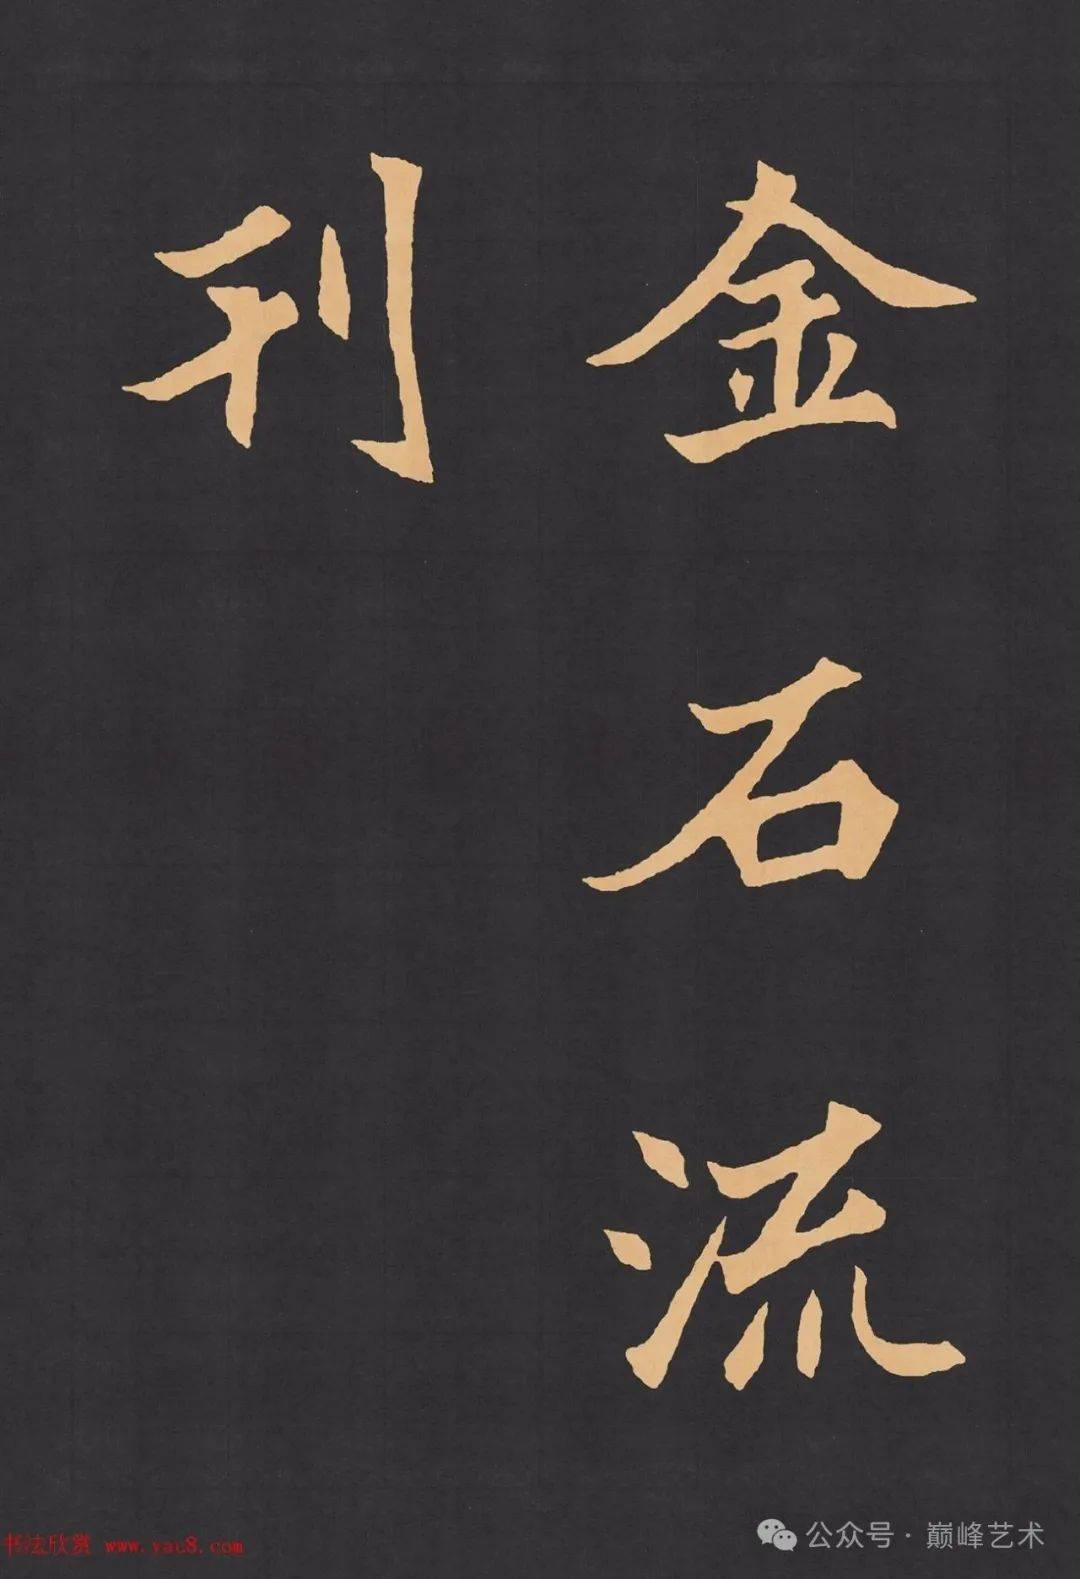 金石流
刊
书法欣赏 www.yac8.com
公众号 · 巅峰艺术